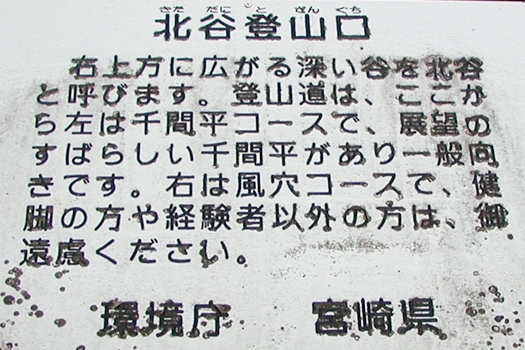 きただにとざんぐち
北谷登山口
右上方に広がる深い谷を北谷
と呼びます。登山道は、ここか
ら左は千間平コースで、展望の
すばらしい千間平があり一般向
きです。右は風穴コースで、健
脚の方や経験者以外の方は、御
遠慮ください。
環境庁 宮崎県